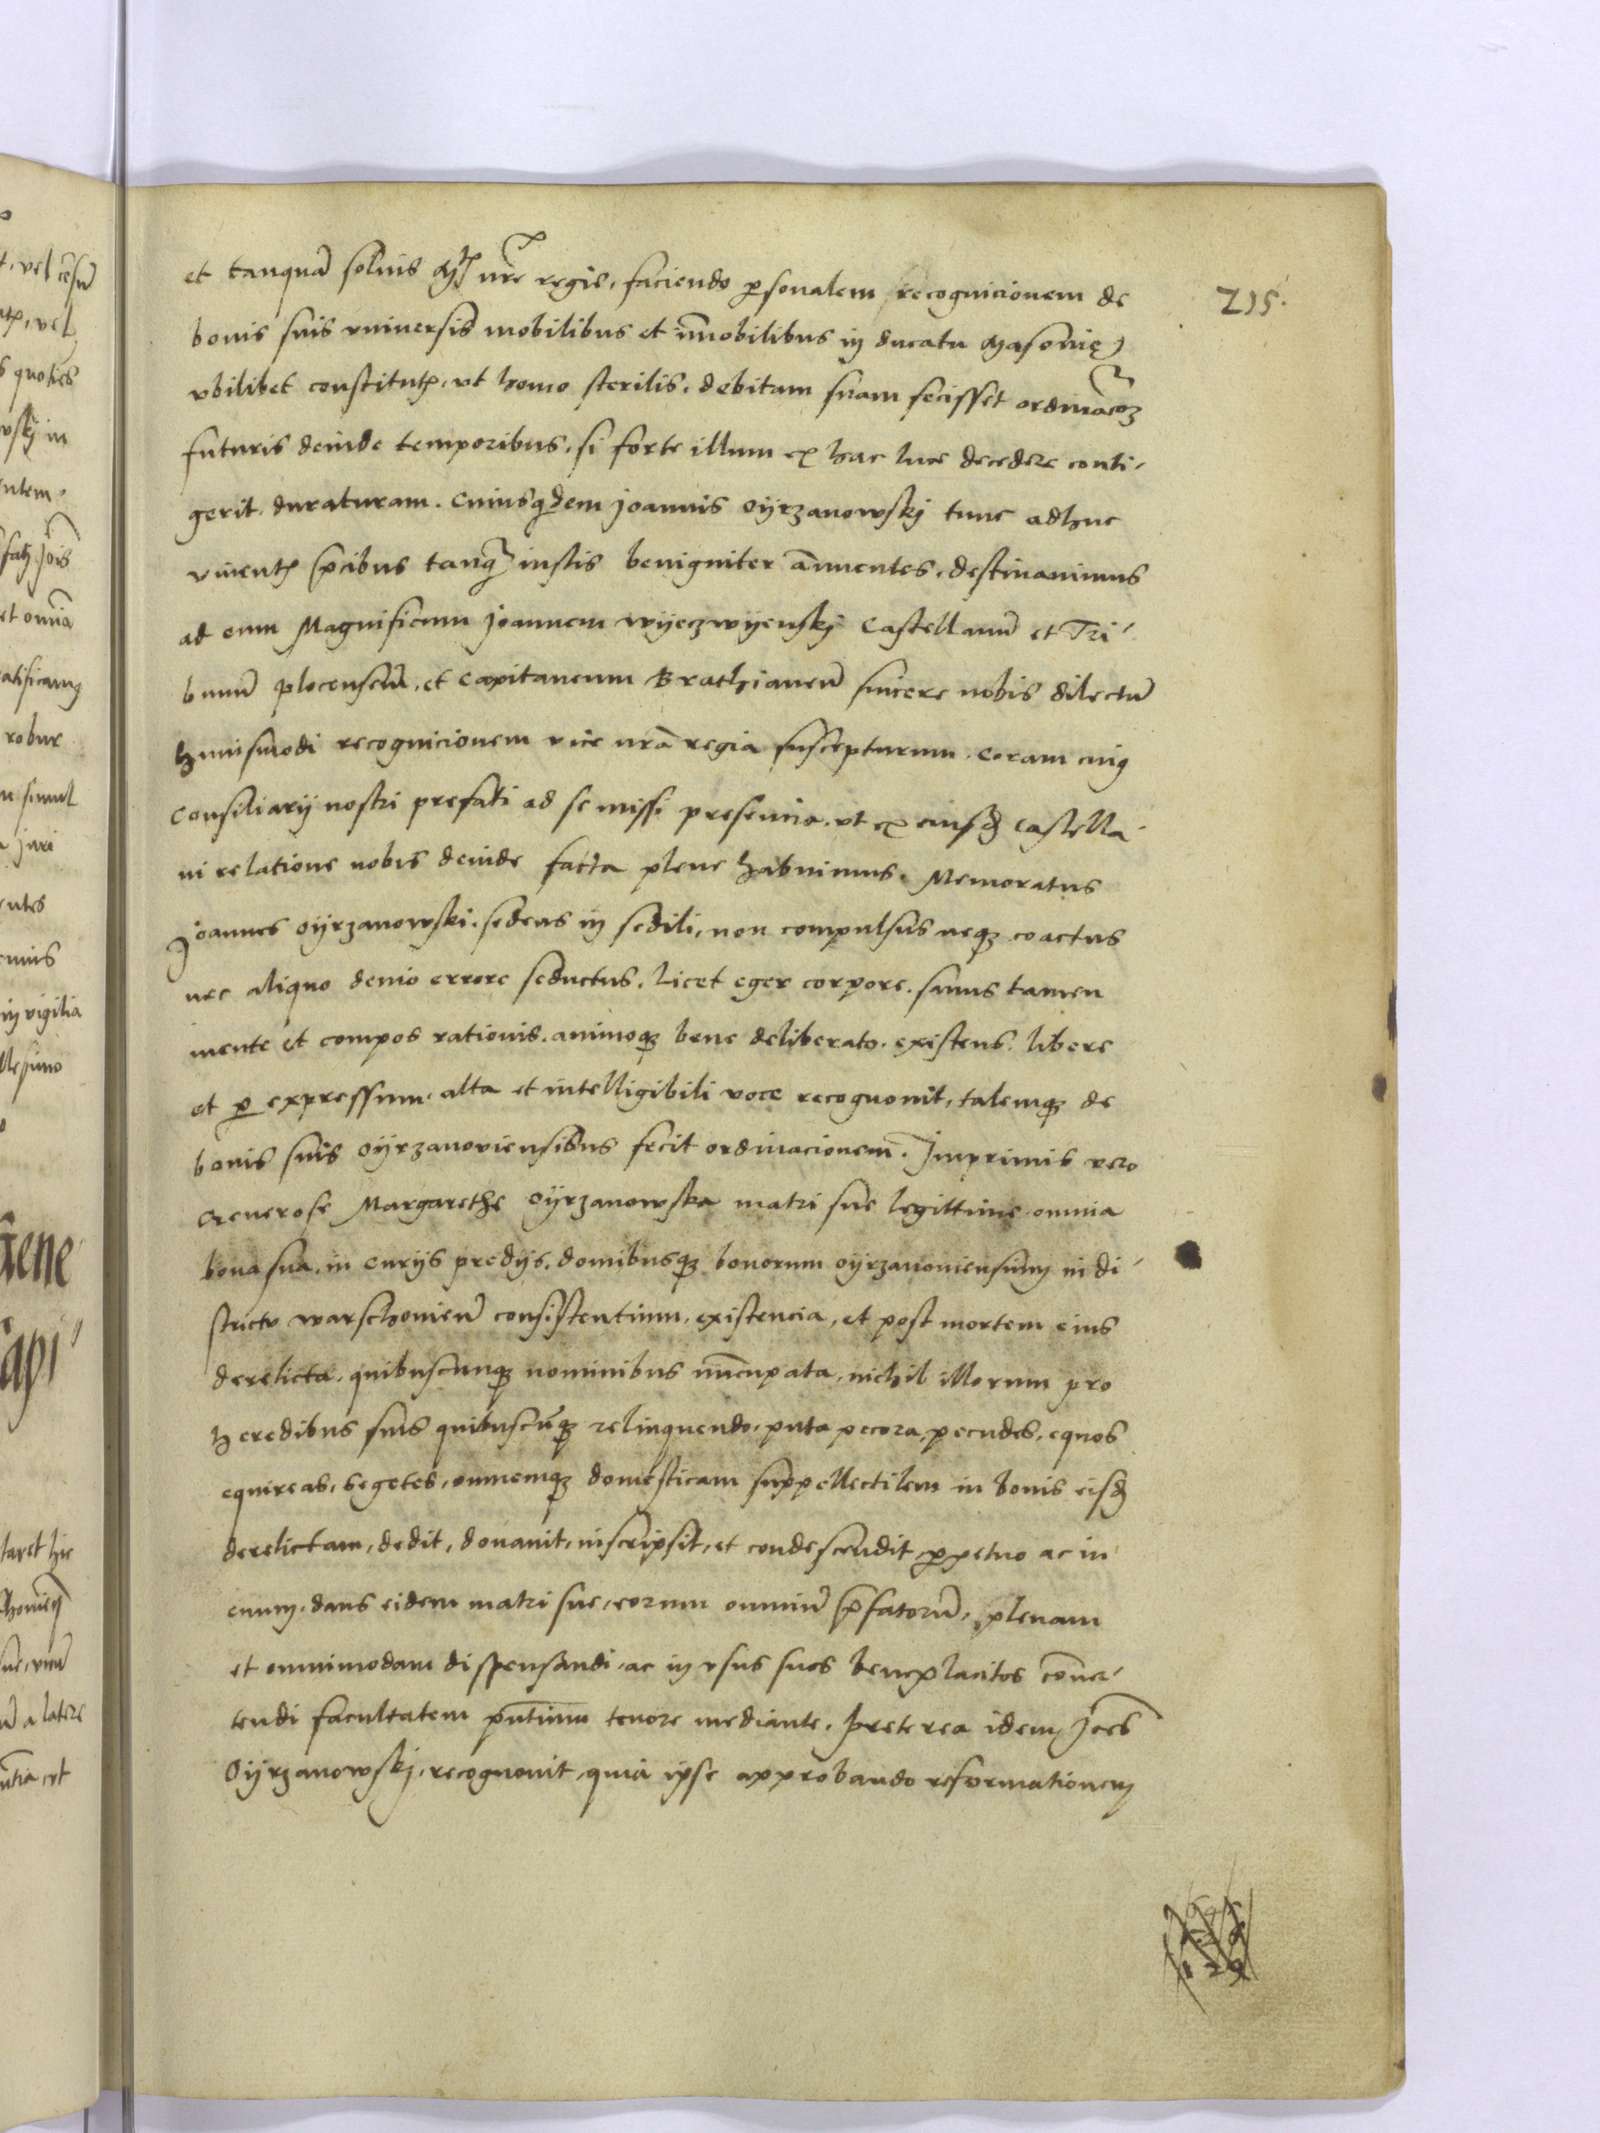 215.
et tanquā solius Mtis nre regie, faciendo psonalem recognicionem de
bonis suis vniversis mobilibus et īmobilibus in ducatu Masovię
vbilibet constitutis, vt homo sterilis, debitam suam fecisset ordinacoēz
futuris deinde temporibus, si forte illum ex hac luce decedere conti-
gerit, duraturam. Cuiusqdem Joannis Oÿrzanowskj tunc adhuc
viventis pcibus tanq iustis benigniter ānuentes, destinavimus
ad eum Magnificum Joannem Wÿeczwÿenskj Castellanū et Tri-
bunū Plocensem, et Capitaneum Brathianeñ sincere nobis dilectū
huiusmodi recognicionem vice nrā regia suscepturum. Coram cuiq
Consiliarij nostri prefati ad se missi presencia, vt ex eiusd Castella-
ni relatione nobis deinde facta plene habuimus. Memoratus
Joannes Oÿrzanowski, sedens in sedili, non compulsus neq coactus
nec aliquo devio errore seductus, licet eger corpore, sanus tamen
mente et compos rationis, animoq bene deliberato existens, libere
et p expressum, alta et intelligibili voce recognovit, talemq de
bonis suis Oÿrzanoviensibus fecit ordinacionem. Imprimis vero
Generose Margarethe Oÿrzanowska matri sue legittime omnia
bona sua, in curijs predijs, domibusq bonorum Oÿrzanoviensium in di-
strictu Warschovieñ consistentium, existencia, et post mortem eius
derelicta, quibuscunq nominibus nūcupata, nichil illorum pro
heredibus suis quibuscūq relinquendo, puta pecora, pecudes, equos
equireas, segetes, omnemq domesticam suppellectilem in bonis eisd
derelictam, dedit, donavit, inscripsit, et condescendit, ppetuo ac in
evum, dans eidem matri sue, eorum omniū pfatorū, plenam
et omnimodam dispensandi, ac in vsus suos beneplacitos cōver-
tendi facultatem pntium tenore mediante. Preterea idem Joes
Oÿrzanowskj, recognovit, quia ipse approbando reformationem